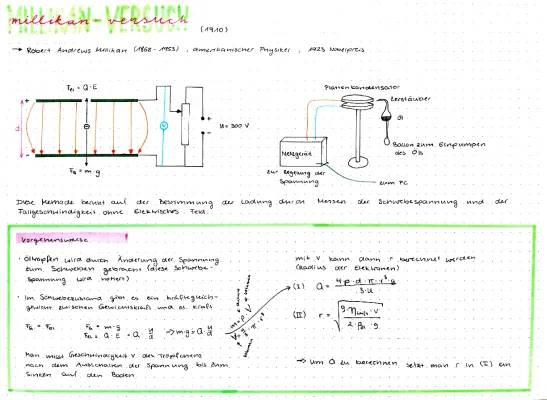 MILLIKAN-VERSUCH
millikan versuch
(1910)
→ Robert Andrews Millikan (1868-1953), amerikanischer Physiker, 1923 Nobelpreis
F_el = Q·E
d
U = 300 V
F_G = m·g
Plattenkondensator
Zerstäuber
Öl
Ballon zum Einpumpen
des Öls
Netzgerät
zur Regelung der
Spannung
zum PC
Diese Methode beruht auf der Bestimmung der Ladung durch Messen der Schwebespannung und der
Fallgeschwindigkeit ohne elektrisches Feld.
Vorgehensweise
· Öltropfen wird durch Änderung der Spannung
zum Schweben gebracht (diese Schwebe-
spannung wird notiert)
· Im Schwebezustand gibt es ein Kräftegleich-
gewicht zwischen Gewichtskraft und el. Kraft
F_G = F_el F_G = m·g
F_el = Q·E = Q·U/d → m·g = Q·U/d
Man misst Geschwindigkeit v des Tröpfchens
nach dem Ausschalten der Spannung bis zum
Sinken auf den Boden
m = ρ·V
mit v kann dann r berechnet werden
(Radius der Elektronen)
(I) Q = 4·ρ·d·π·r³·g / 3·U
(II) r = √ 9·η·v / 2·ρ·g
→ um Q zu berechnen setzt man r in (I) ein